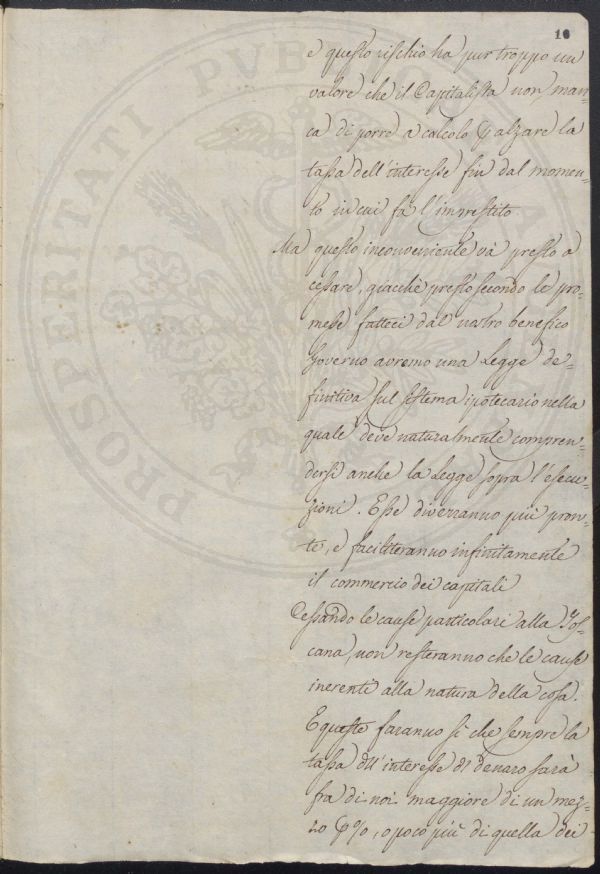 16
e questo rischio ha pur troppo un
valore che il Capitalista non man-
ca di porre a calcolo p alzare la
tassa dell'interesse fin dal momen-
to in cui fa l'imprestito
Ma questo inconveniente và presto a
cessare, giacchè presto secondo le pro-
messe fatteci dal nostro benefico
Governo avremo una Legge de-
finitiva sul sistema ipotecario nella
quale deve naturalmente compren-
dersi anche la Legge sopra l'esecu-
zioni. Esse diverranno più pron-
te, e faciliteranno infinitamente
il commercio dei capitali
Cessando le cause particolari alla Tos-
cana, non resteranno che le cause
inerenti alla natura della cosa.
E queste faranno sì che sempre la
tassa dll'interesse dl denaro sarà
fra di noi maggiore di un mez-
zo p%, o poco più di quella dei
PROSPERITATI PUB